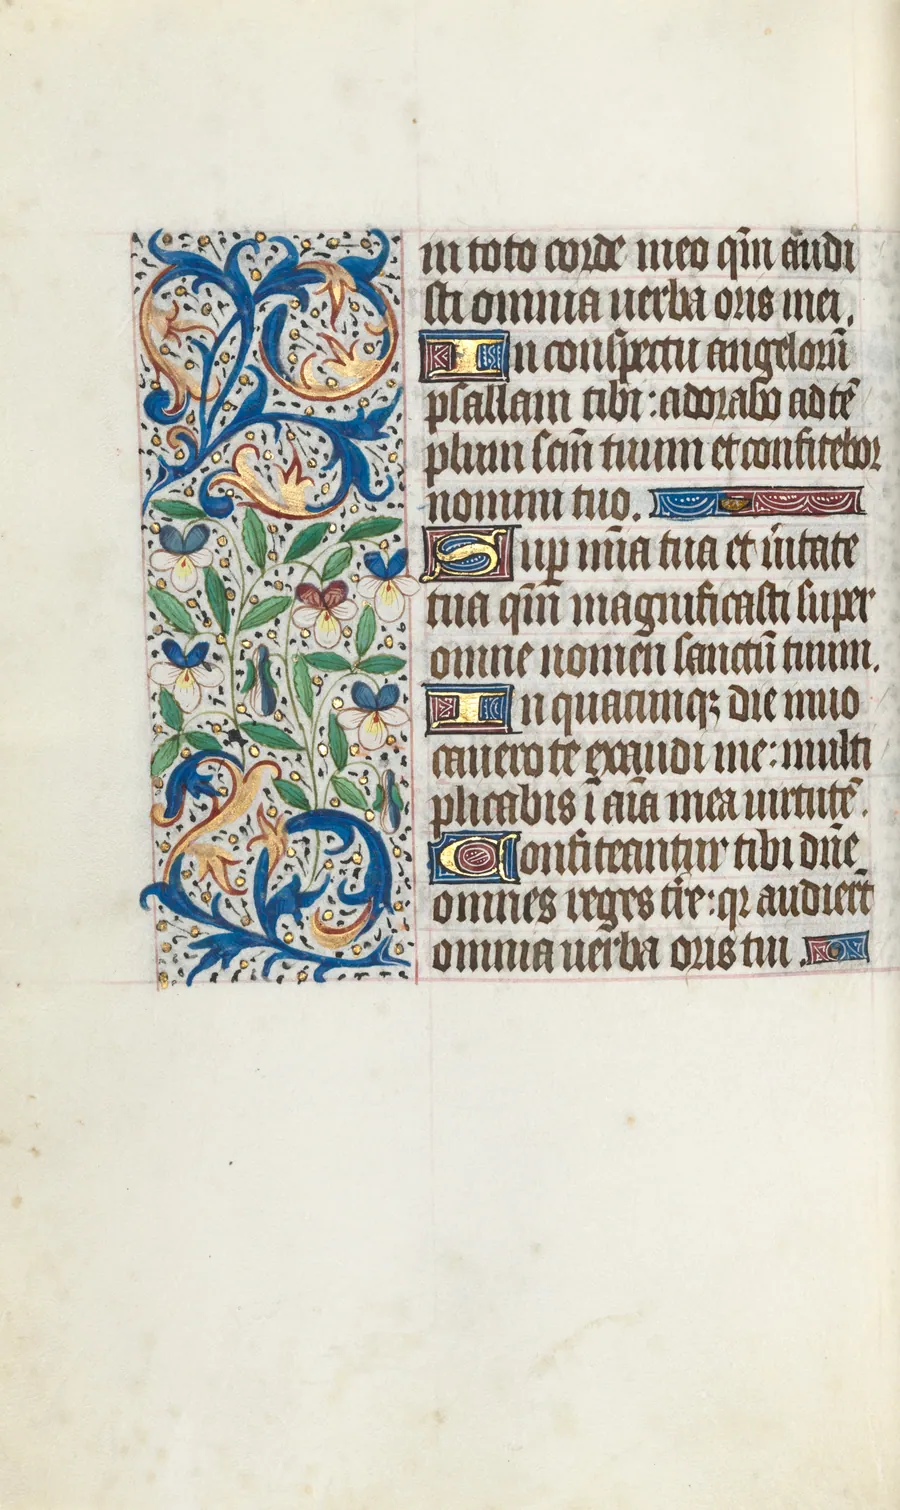 in toto corde meo qm̄ audi
sti omnia uerba oris mei.
In conspectu angeloru̅
psallam tibi: adorabo ad te̅
plum scm̄ tuum et confitebor
nomini tuo.
Sup mīa tua et ūitate
tua qm̄ magnificasti super
omne nomen sanctu̅ tuum.
In quacumqꝫ die inuo
cauero te exaudi me: multi
plicabis ī aīa mea uirtute̅.
Confiteantur tibi dn̄e
omnes reges tr̄e: qr audieru̅t
omnia uerba oris tui.